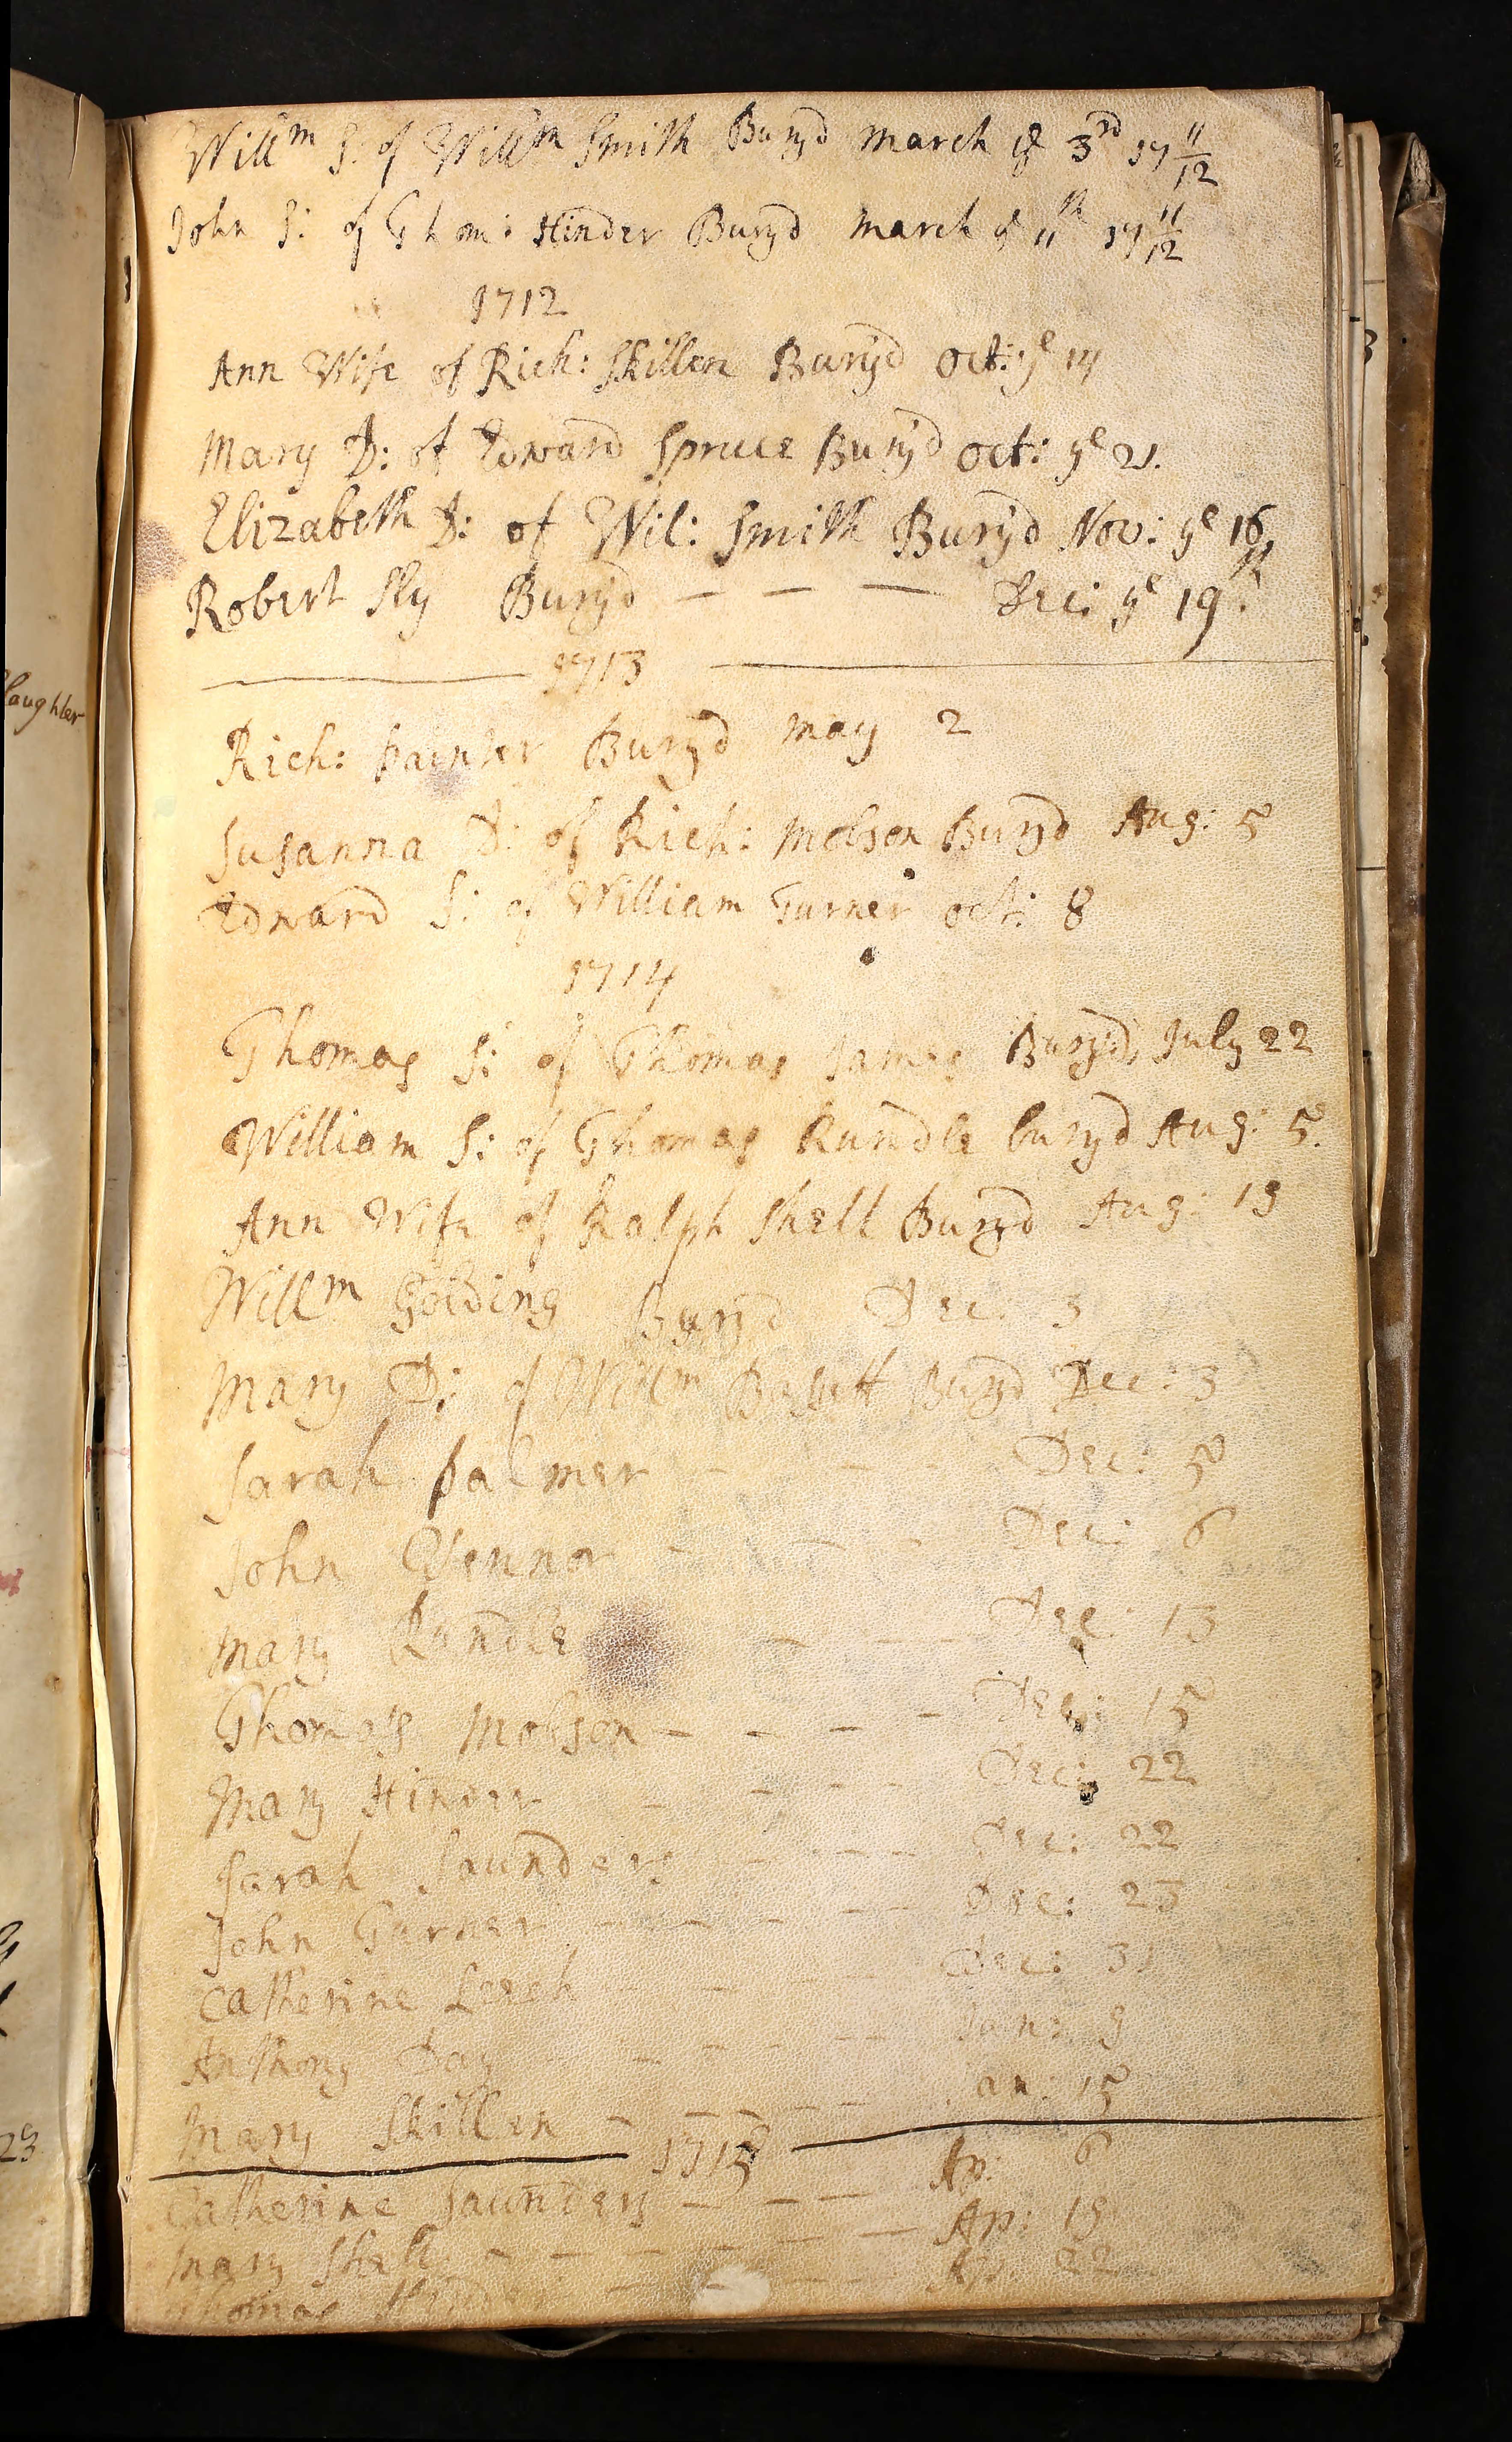 Willm S: of Willm Smith Buryd March ye 3rd 17 11/12
John S: of Thom: Hinder Buryd March ye 11th 17 11/12
1712
Ann Wife of Rich: Skillen Buryd Oct: ye 14
Mary D: of Edward Spruce Buryd Oct: ye 21.
Elizabeth D: of Wil: Smith Buryd Nov: ye 16
Robert Sly Buryd - - - Dec: ye 19th.
1713
Rich: painter Buryd May 2
Susanna D: of Rich: Mobson Buryd Aug: 5
Edward S: of William Turner Oct: 8
1714
Thomas S: of Thomas James Buryd July 22
William S: of Thomas Rundle buryd Aug: 5.
Ann Wife of Ralph Shell Buryd Aug: 19
Willm Golding Buryd Dec: 3
Mary D: of Willm Basett Buryd Dec: 3
Sarah palmer - - - Dec: 5
John Vennor - - - Dec: 6
Mary Rundle - - - Dec: 13
Thomas Mobson - - - - Dec: 15
Mary Hinder - - - - Dec: 22
Sarah Saunders - - - - Dec: 22
John Turner - - - - - Dec: 23
Catherine Leech - - - - Dec: 31
Anthony Day - - - - - Jan: 9
Mary Skillen - - - - - Jan: 15
1715
Catherine Saunders - - - - Ap: 6
Mary Shell - - - - - - Ap: 19
Thomas - - - - - Ap: 22
laughter
23